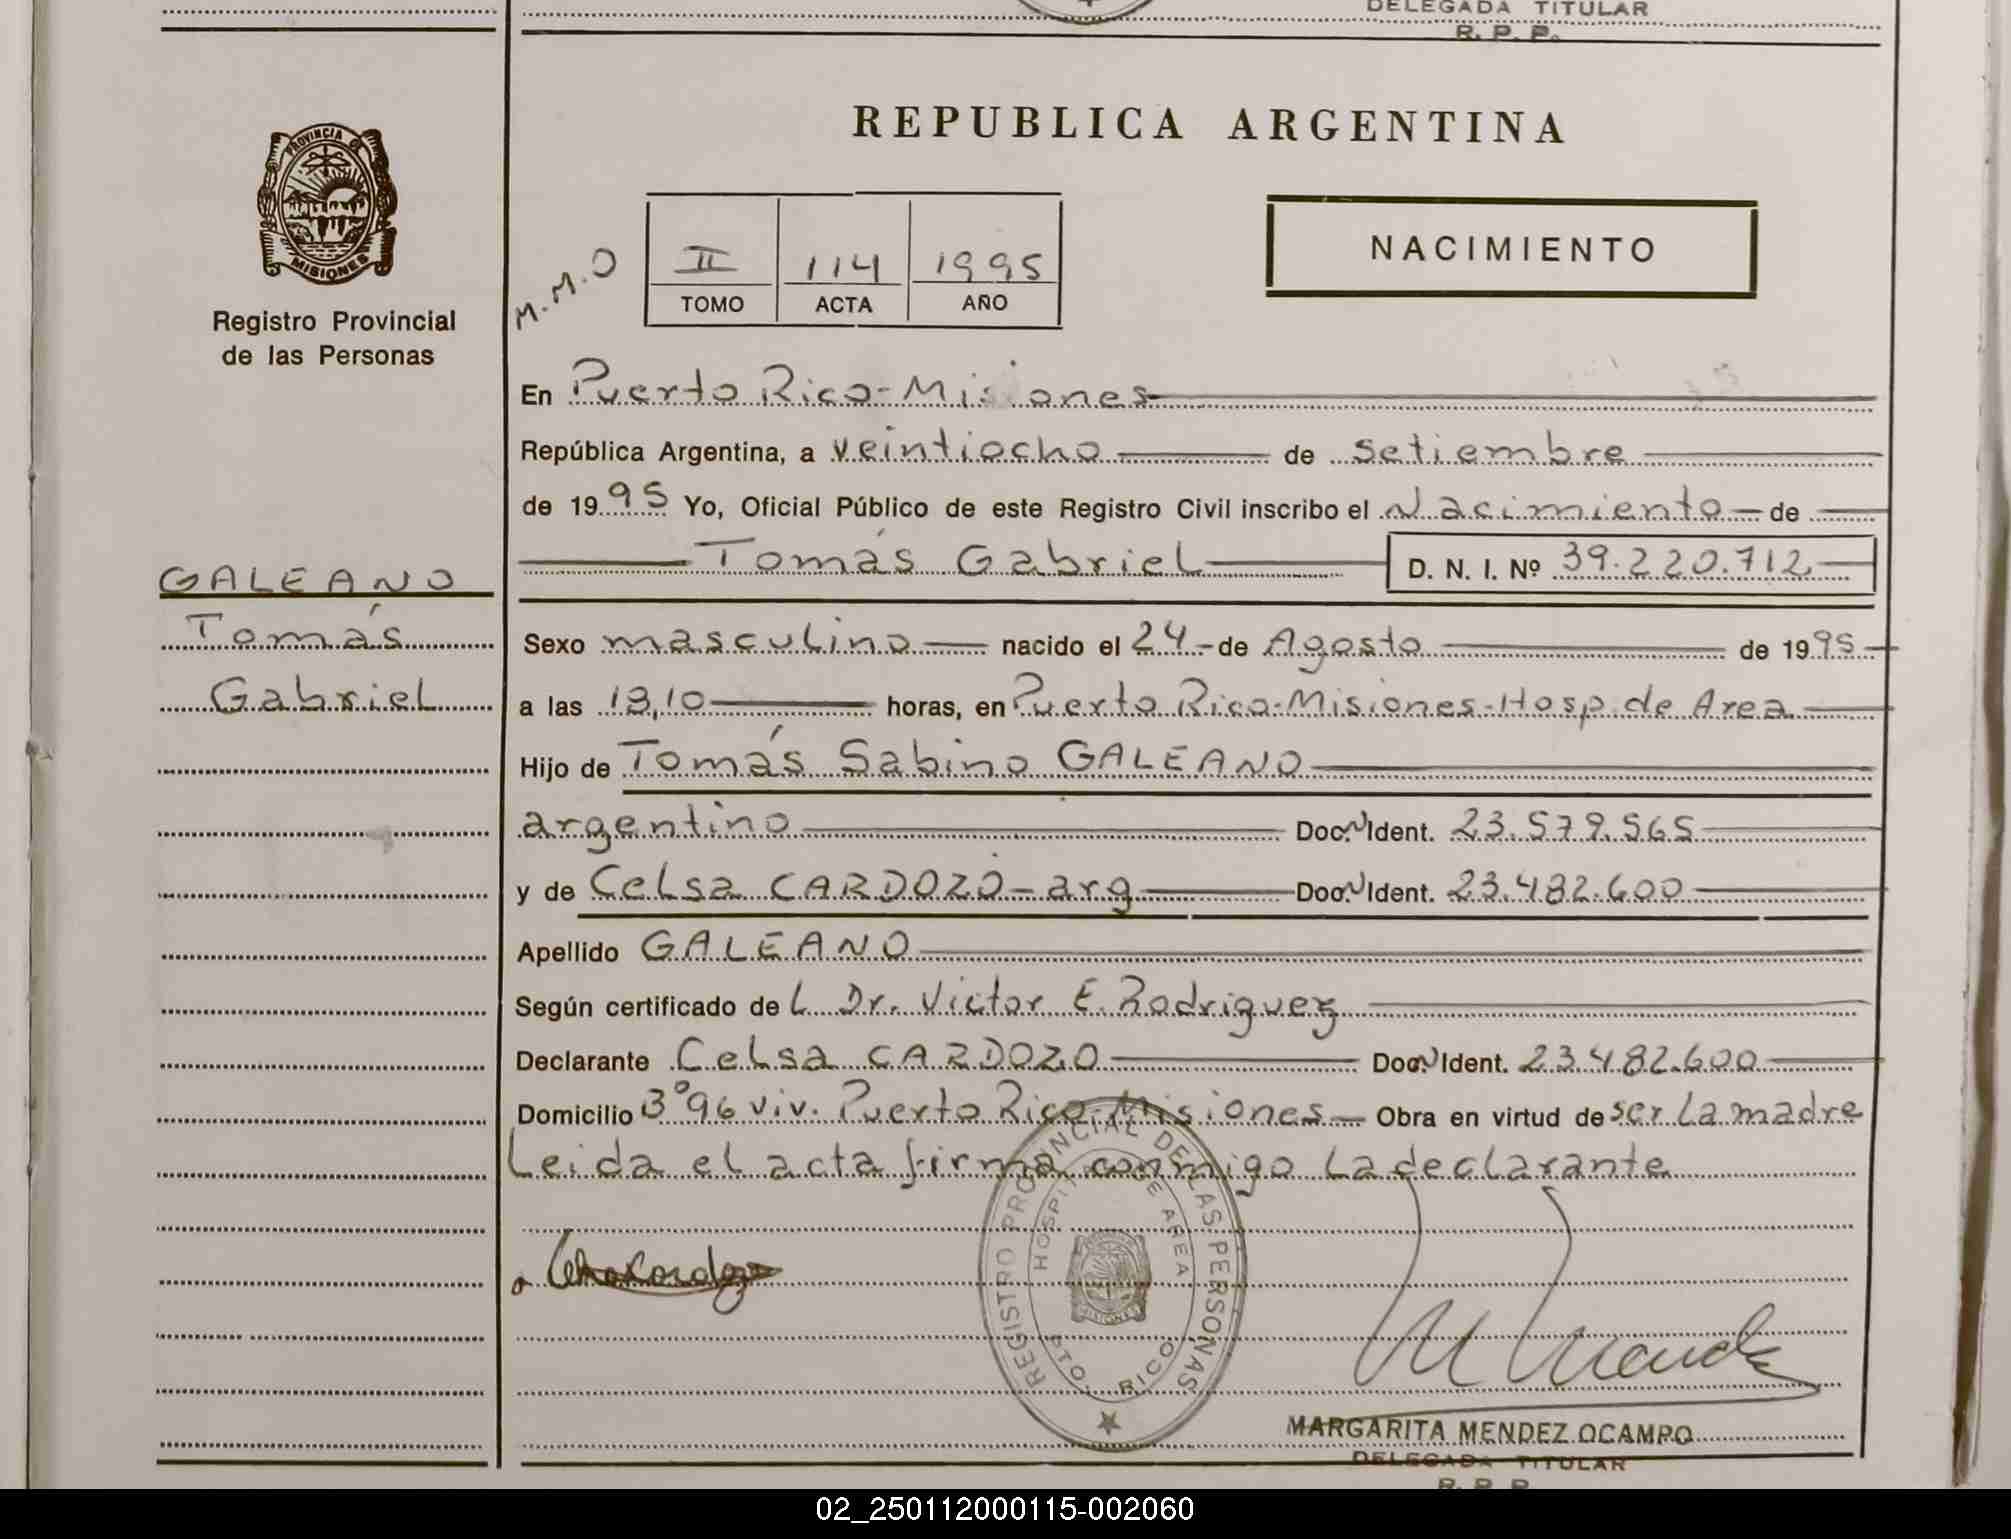 DELEGADA TITULAR
R. P. P.
PROVINCIA DE
MISIONES
Registro Provincial
de las Personas
REPUBLICA ARGENTINA
M.M.O
II 114 1995
TOMO ACTA AÑO
NACIMIENTO
En Puerto Rico-Misiones
República Argentina, a veintiocho de setiembre
de 1995 Yo, Oficial Público de este Registro Civil inscribo el Nacimiento de
Tomás Gabriel D. N. I. Nº 39.220.712
GALEANO
Tomás
Gabriel
Sexo masculino nacido el 24 de Agosto de 1995
a las 13,10 horas, en Puerto Rico-Misiones-Hosp. de Area
Hijo de Tomás Sabino GALEANO
argentino Doc. Ident. 23.579.565
y de Celsa CARDOZO-arg Doc. Ident. 23.482.600
Apellido GALEANO
Según certificado del Dr. Victor E. Rodriguez
Declarante Celsa CARDOZO Doc. Ident. 23.482.600
Domicilio Bº 96 viv. Puerto Rico-Misiones Obra en virtud de ser la madre
Leida el acta firma conmigo la declarante
REGISTRO PROVINCIAL DE LAS PERSONAS
HOSPITAL DE AREA
PTO. RICO
MISIONES
MARGARITA MENDEZ OCAMPO
DELEGADA TITULAR
R. P. P.
02_250112000115-002060